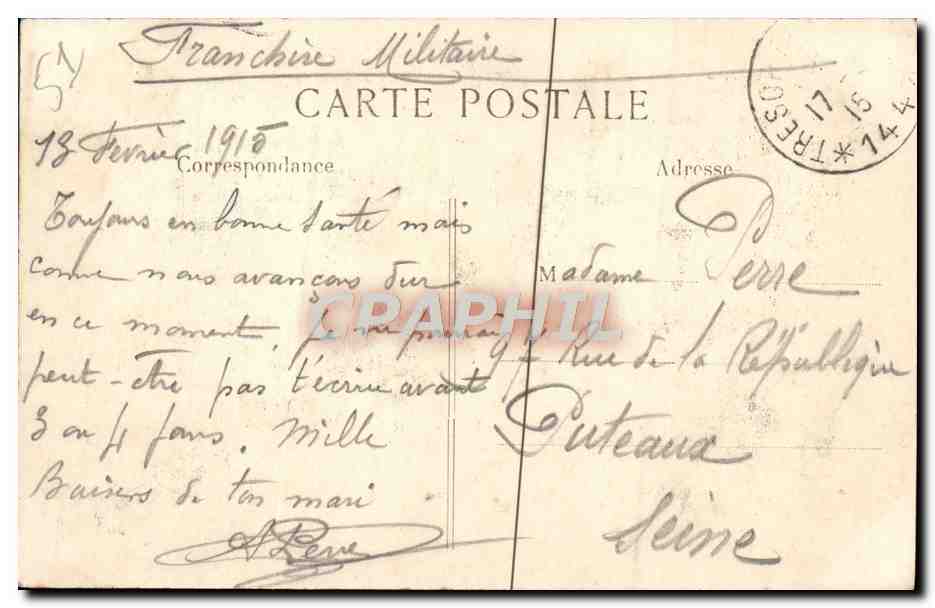 Franchise Militaire
CARTE POSTALE
TRESOR
17
15
*144
13 Février 1915
Correspondance
Adresse
Toujours en bonne santé mais
comme nous avançons dur
en ce moment, je ne pourrai
peut-etre pas t'écrire avant
3 ou 4 jours. Mille
Baisers de ton mari
Madame Perre
Rue de la République
Puteaux
Seine
CRAPHIL